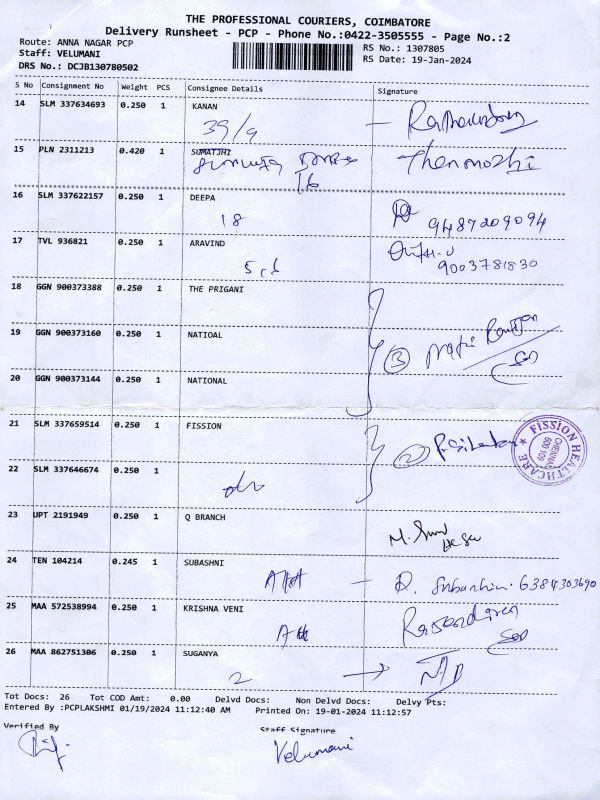 THE PROFESSIONAL COURIERS, COIMBATORE
Delivery Runsheet - PCP - Phone No.:0422-3505555 - Page No.:2
Route: ANNA NAGAR PCP
RS No.: 1307805
Staff: VELUMANI
RS Date: 19-Jan-2024
DRS No.: DCJB130780502
S No Consignment No Weight PCS Consignee Details Signature
14 SLM 337634693 0.250 1 KANAN
39/9
15 PLN 2311213 0.420 1 SUMATJHI
Thenmozhi
16
16 SLM 337622157 0.250 1 DEEPA
18 9487209094
17 TVL 936821 0.250 1 ARAVIND
9003781830
18 GGN 900373388 0.250 1 THE PRIGANI
19 GGN 900373160 0.250 1 NATIOAL
3
20 GGN 900373144 0.250 1 NATIONAL
21 SLM 337659514 0.250 1 FISSION
2
FISSION HEALTHCARE
CHENNAI
600 109
22 SLM 337646674 0.250 1
23 UPT 2191949 0.250 1 Q BRANCH
24 TEN 104214 0.245 1 SUBASHNI
6384303690
25 MAA 572538994 0.250 1 KRISHNA VENI
26 MAA 862751306 0.250 1 SUGANYA
2
Tot Docs: 26 Tot COD Amt: 0.00 Delvd Docs: Non Delvd Docs: Delvy Pts:
Entered By :PCPLAKSHMI 01/19/2024 11:12:40 AM Printed On: 19-01-2024 11:12:57
Verified By Staff Signature
Velumani